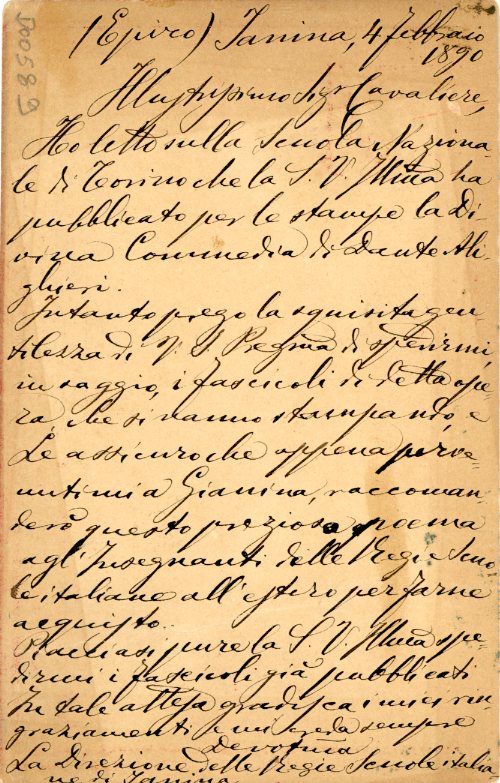 (Epiro) Janina, 4 febbraio
1890
Illustrissimo Sigr Cavaliere,
Ho letto sulla Scuola Naziona-
le di Torino che la S. V. Illma ha
pubblicato per le stampe la Di-
vina Commedia di Dante Ali-
ghieri.
Intanto prego la squisita gen-
tilezza di V. S. Pregma di spedirmi,
in saggio, i fascicoli di detta ope-
ra, che si vanno stampando, e
Le assicuro che appena perve-
nutimi a Gianina, raccoman-
derò questo prezioso poema
agl'Insegnanti delle Regie Scuo-
le italiane all'estero per farne
acquisto.
Piacciasi pure la S. V. Illma spe-
dirmi i fascicoli già pubblicati
In tale attesa gradisca i miei rin-
graziamenti e mi creda sempre
devotma
La Direzione delle Regie Scuole italia-
ne di Janina
5005